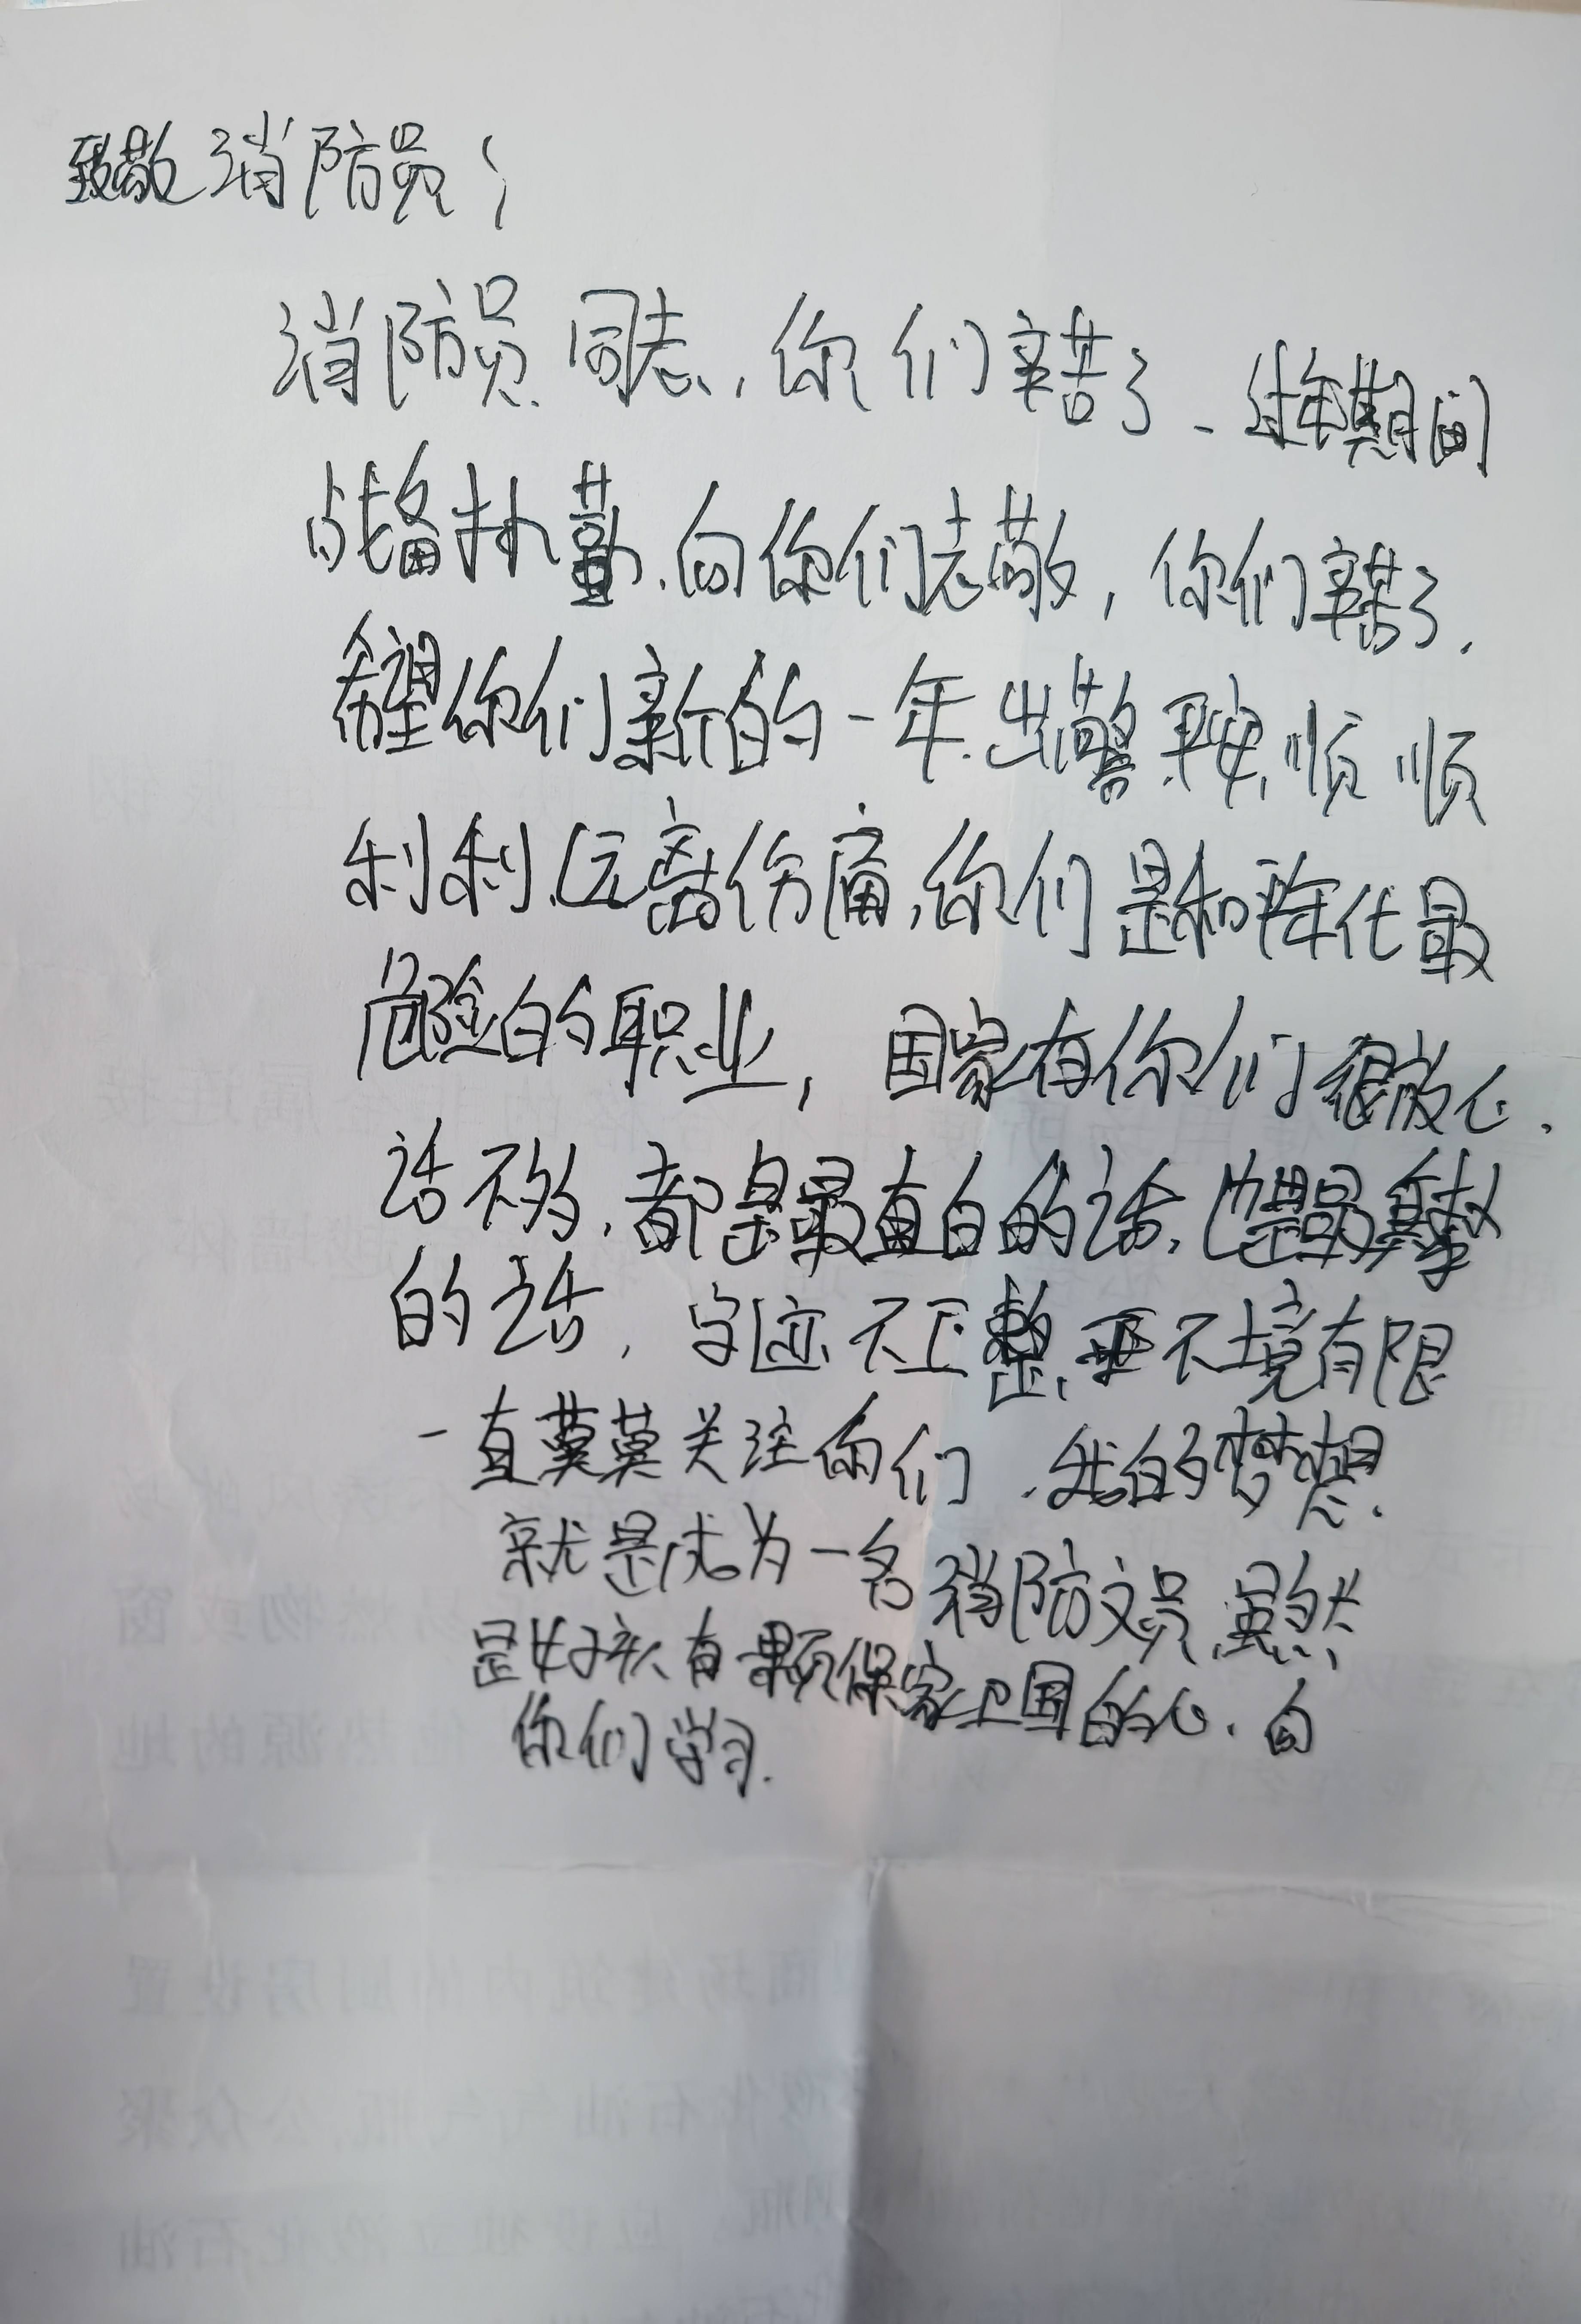 致敬消防员；
消防员同志，你们辛苦了、过年期间
战备执勤，向你们志敬，你们辛苦了，
希望你们新的一年，出警平安，顺顺
利利，远离伤痛，你们是和平年代最
危险的职业，国家有你们很放心，
话不多，都是最直白的话，也是最真挚
的话，字迹不正整，环境有限
一直莫莫关注你们，我的梦想，
就是成为一名消防文员，虽然
是女孩有颗保家卫国的心，向
你们学习.